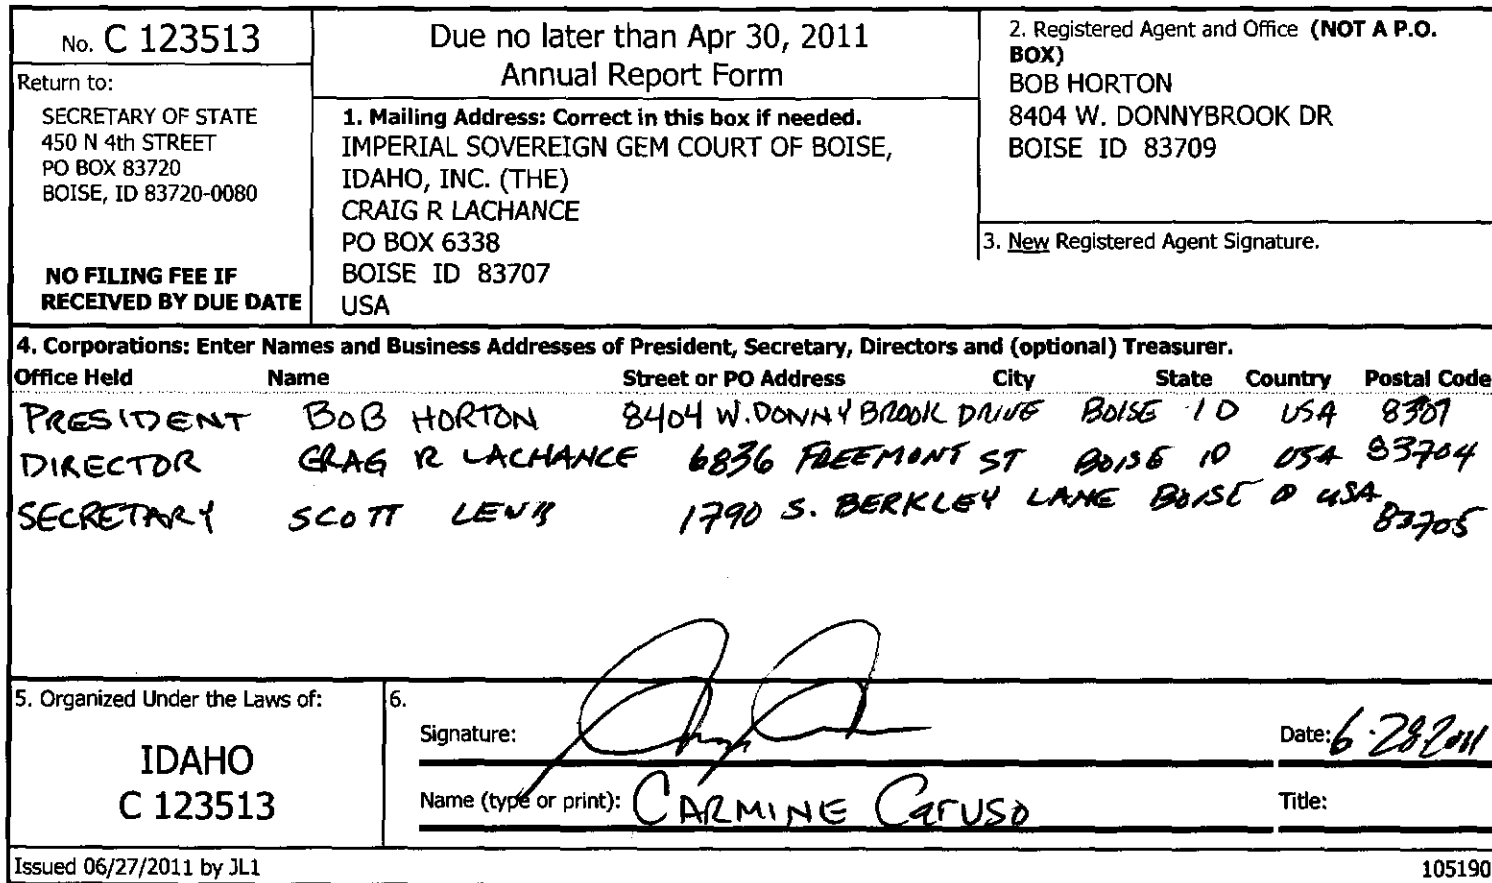 No. C 123513
Return to:
SECRETARY OF STATE
450 N 4th STREET
PO BOX 83720
BOISE, ID 83720-0080
NO FILING FEE IF
RECEIVED BY DUE DATE
Due no later than Apr 30, 2011
Annual Report Form
1. Mailing Address: Correct in this box if needed.
IMPERIAL SOVEREIGN GEM COURT OF BOISE,
IDAHO, INC. (THE)
CRAIG R LACHANCE
PO BOX 6338
BOISE ID 83707
USA
2. Registered Agent and Office (NOT A P.O.
BOX)
BOB HORTON
8404 W. DONNYBROOK DR
BOISE ID 83709
3. New Registered Agent Signature.
4. Corporations: Enter Names and Business Addresses of President, Secretary, Directors and (optional) Treasurer.
Office Held Name Street or PO Address City State Country Postal Code
PRESIDENT BOB HORTON 8404 W. DONNYBROOK DRIVE BOISE ID USA
DIRECTOR R LACHANCE 6836 ST BOISE ID USA 83704
SECRETARY SCOTT LEWIS 1790 S. BERKLEY LANE BOISE ID USA
83705
5. Organized Under the Laws of:
IDAHO
C 123513
6.
Signature:
Date: 6-28-2011
Name (type or print): CARMINE Caruso
Title:
Issued 06/27/2011 by JL1
105190